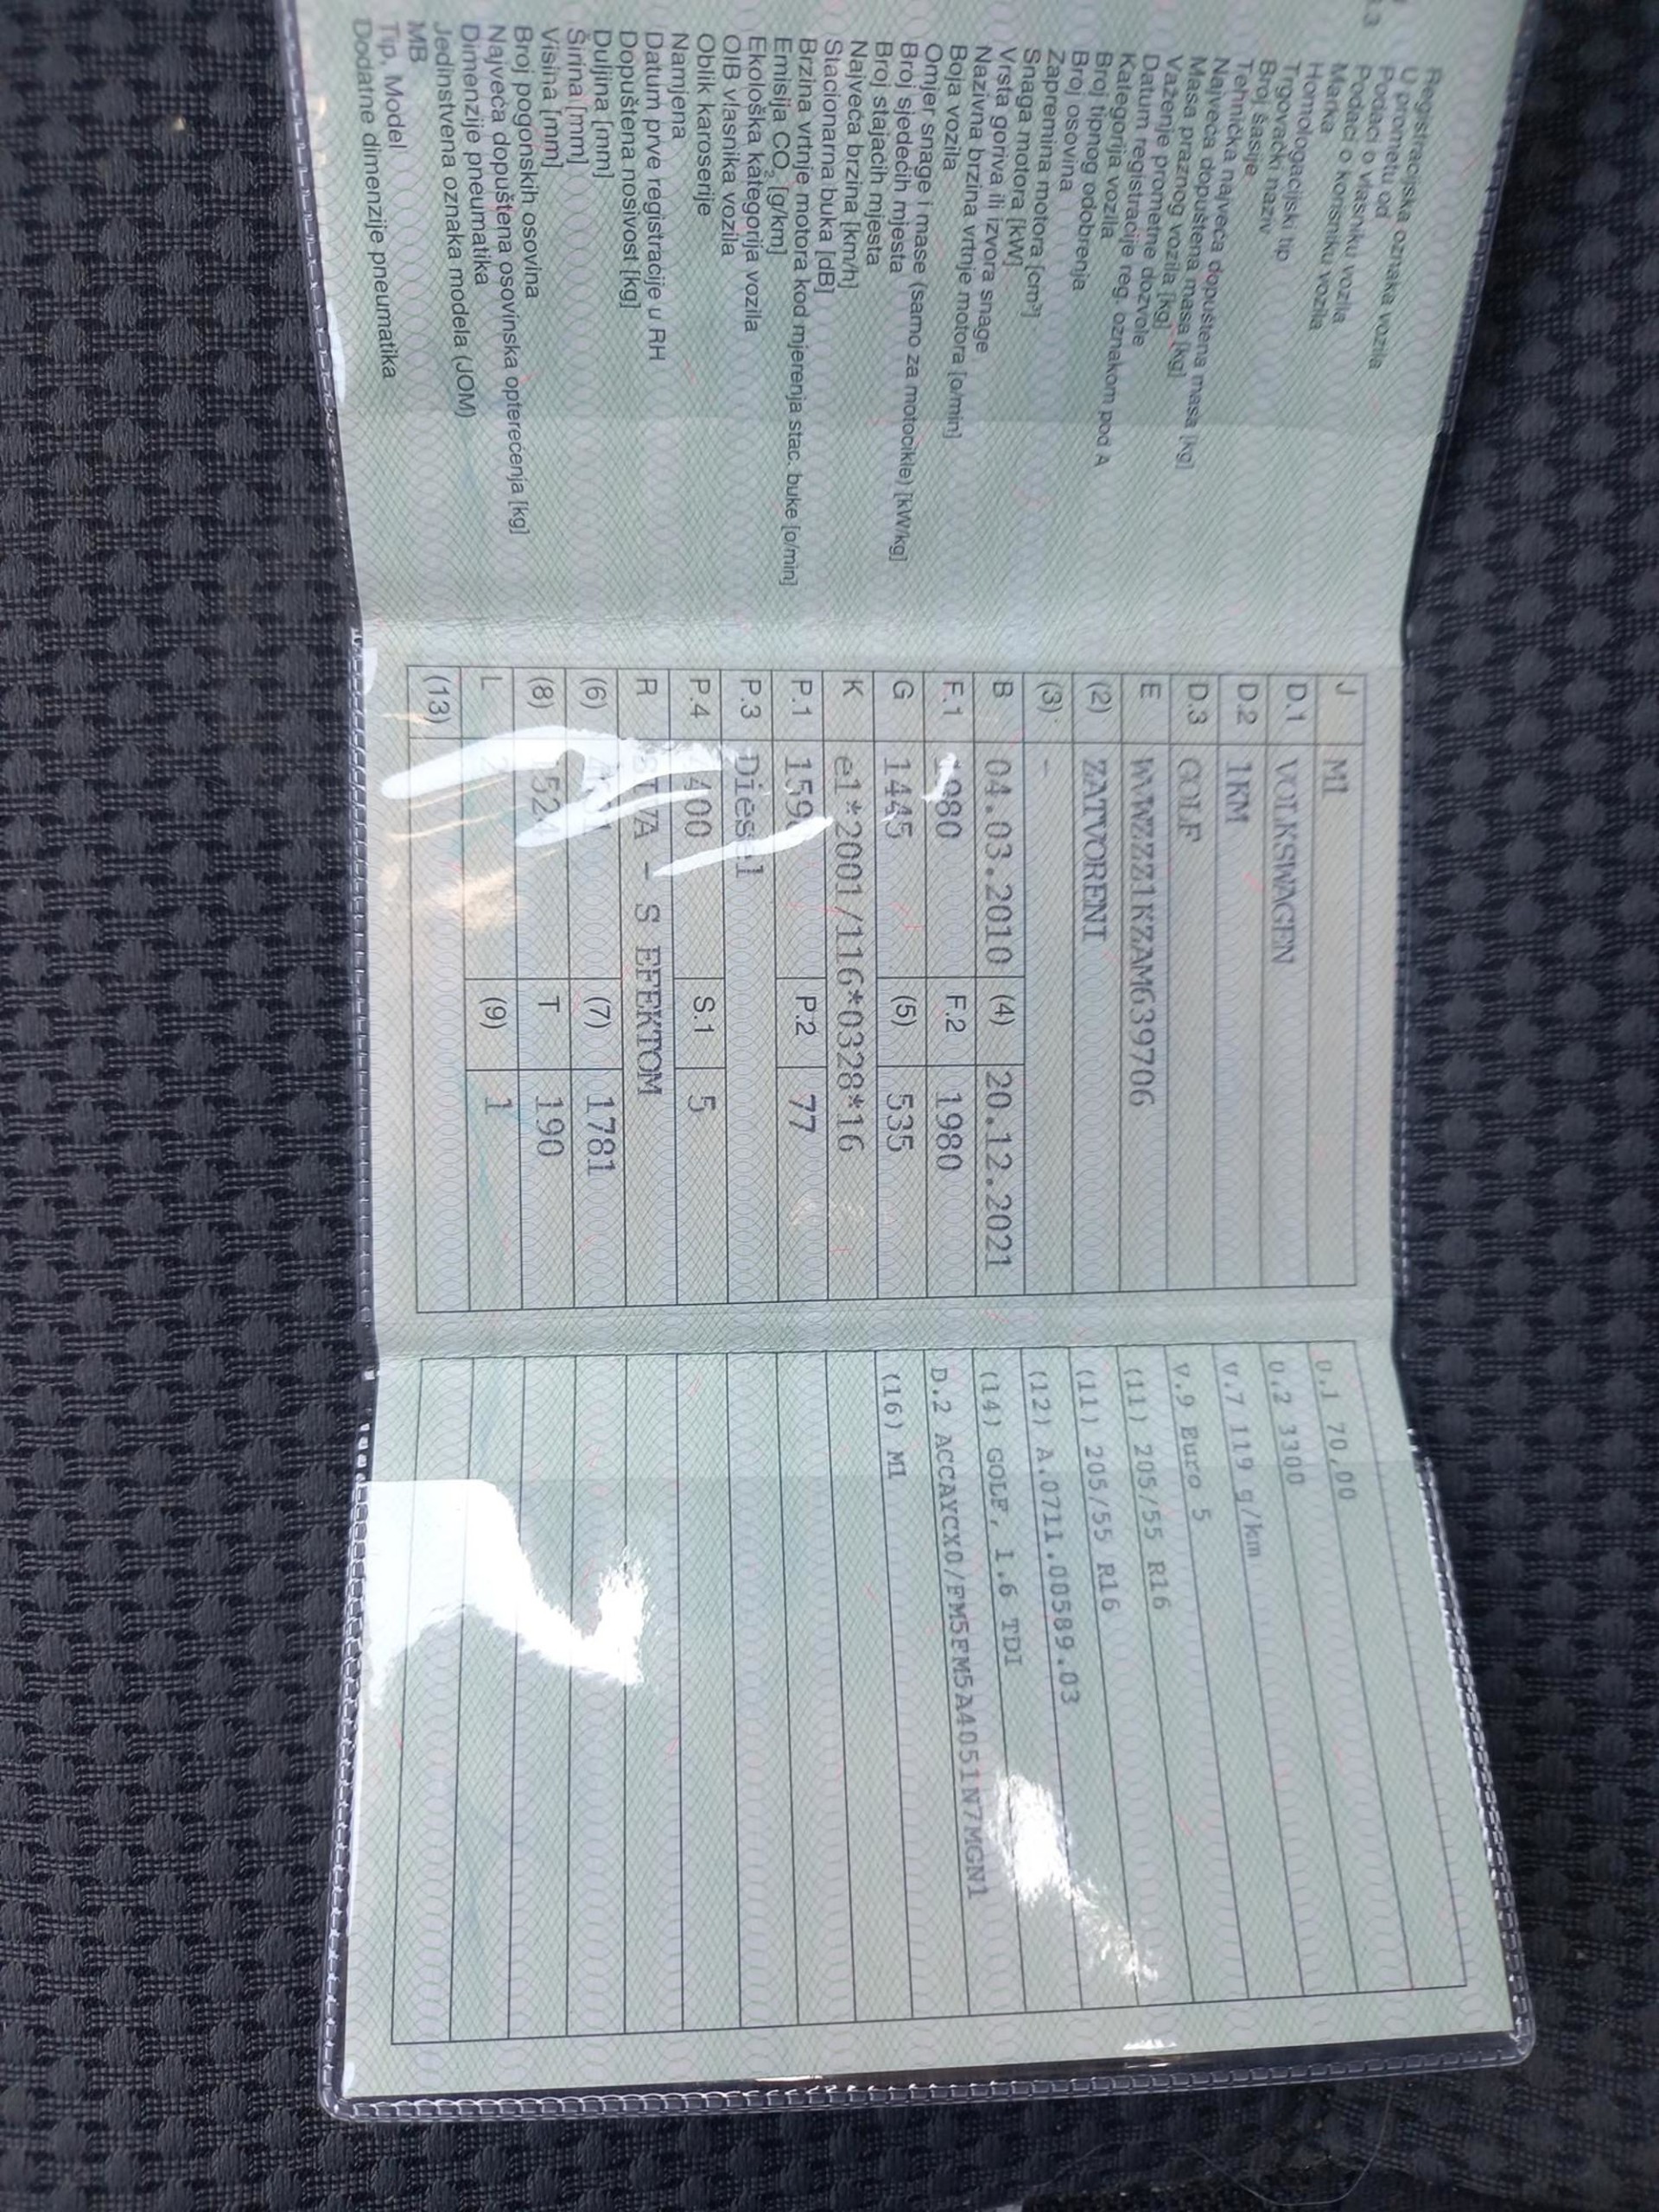 Registracijska oznaka vozila
U prometu od
Podaci o vlasniku vozila
Podaci o korisniku vozila
Marka
Homologacijski tip
Trgovački naziv
Broj šasije
Tehnička najveća dopuštena masa [kg]
Najveća dopuštena masa [kg]
Masa praznog vozila [kg]
Važenje prometne dozvole
Datum registracije reg. oznakom pod A
Kategorija vozila
Broj tipnog odobrenja
Broj osovina
Zapremina motora [cm³]
Snaga motora [kW]
Vrsta goriva ili izvora snage
Nazivna brzina vrtnje motora [o/min]
Boja vozila
Omjer snage i mase (samo za motocikle) [kW/kg]
Broj sjedećih mjesta
Broj stajaćih mjesta
Najveća brzina [km/h]
Stacionarna buka [dB]
Brzina vrtnje motora kod mjerenja stac. buke [o/min]
Emisija CO₂ [g/km]
Ekološka kategorija vozila
OIB vlasnika vozila
Oblik karoserije
Namjena
Datum prve registracije u RH
Dopuštena nosivost [kg]
Duljina [mm]
Širina [mm]
Visina [mm]
Broj pogonskih osovina
Najveća dopuštena osovinska opterećenja [kg]
Dimenzije pneumatika
Jedinstvena oznaka modela (JOM)
MB
Tip, Model
Dodatne dimenzije pneumatika
J M1
D.1 VOLKSWAGEN
D.2 1KM
D.3 GOLF
E WVWZZZ1KZAM639706
(2) ZATVORENI
(3) -
B 04.03.2010 (4) 20.12.2021
F.1 1980 F.2 1980
G 1445 (5) 535
K e1*2001/116*0328*16
P.1 P.2 77
P.3 Diesel
P.4 S.1 5
R - S EFEKTOM
(6) (7) 1781
(8) T 190
L (9) 1
(13)
U.1 70,00
U.2 3300
V.7 119 g/km
V.9 Euro 5
(11) 205/55 R16
(11) 205/55 R16
(12) A.0711.00589.03
(14) GOLF, 1.6 TDI
D.2 ACCAYCX0/FM5FM5A4051N7MGN1
(16) M1